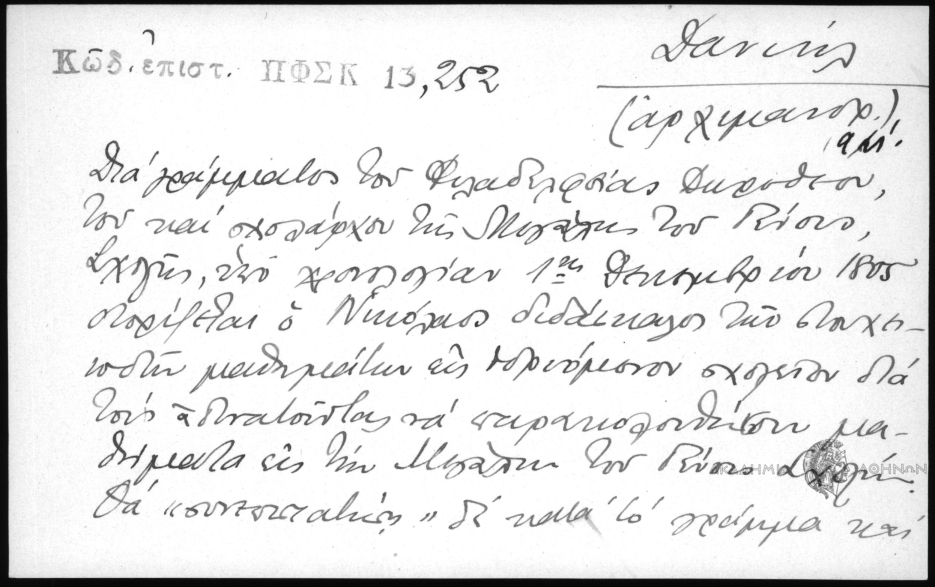 Κῶδ. ἐπιστ. ΠΦΣΚ 13,252
Δανιήλ
(ἀρχιμανδρ.)
Διά γράμματος τοῦ Φιλαδελφείας Δωροθέου,
τοῦ καί σχολάρχου τῆς Μεγάλης τοῦ Γένους
Σχολῆς, ὑπό χρονολογίαν 1ης Δεκεμβρίου 1805
διορίζεται ὁ Νικόλαος διδάσκαλος τῶν στοιχει-
ωδῶν μαθημάτων εἰς ἱδρυόμενον σχολεῖον διά
τούς ἀδυνατοῦντας νά παρακολουθήσουν μα-
θήματα εἰς τήν Μεγάλην τοῦ Γένους Σχολήν.
Θά "συνεπιστατήσῃ" δέ κατά τό γράμμα καί
ΑΚΑΔΗΜΙΑ ΑΘΗΝΩΝ